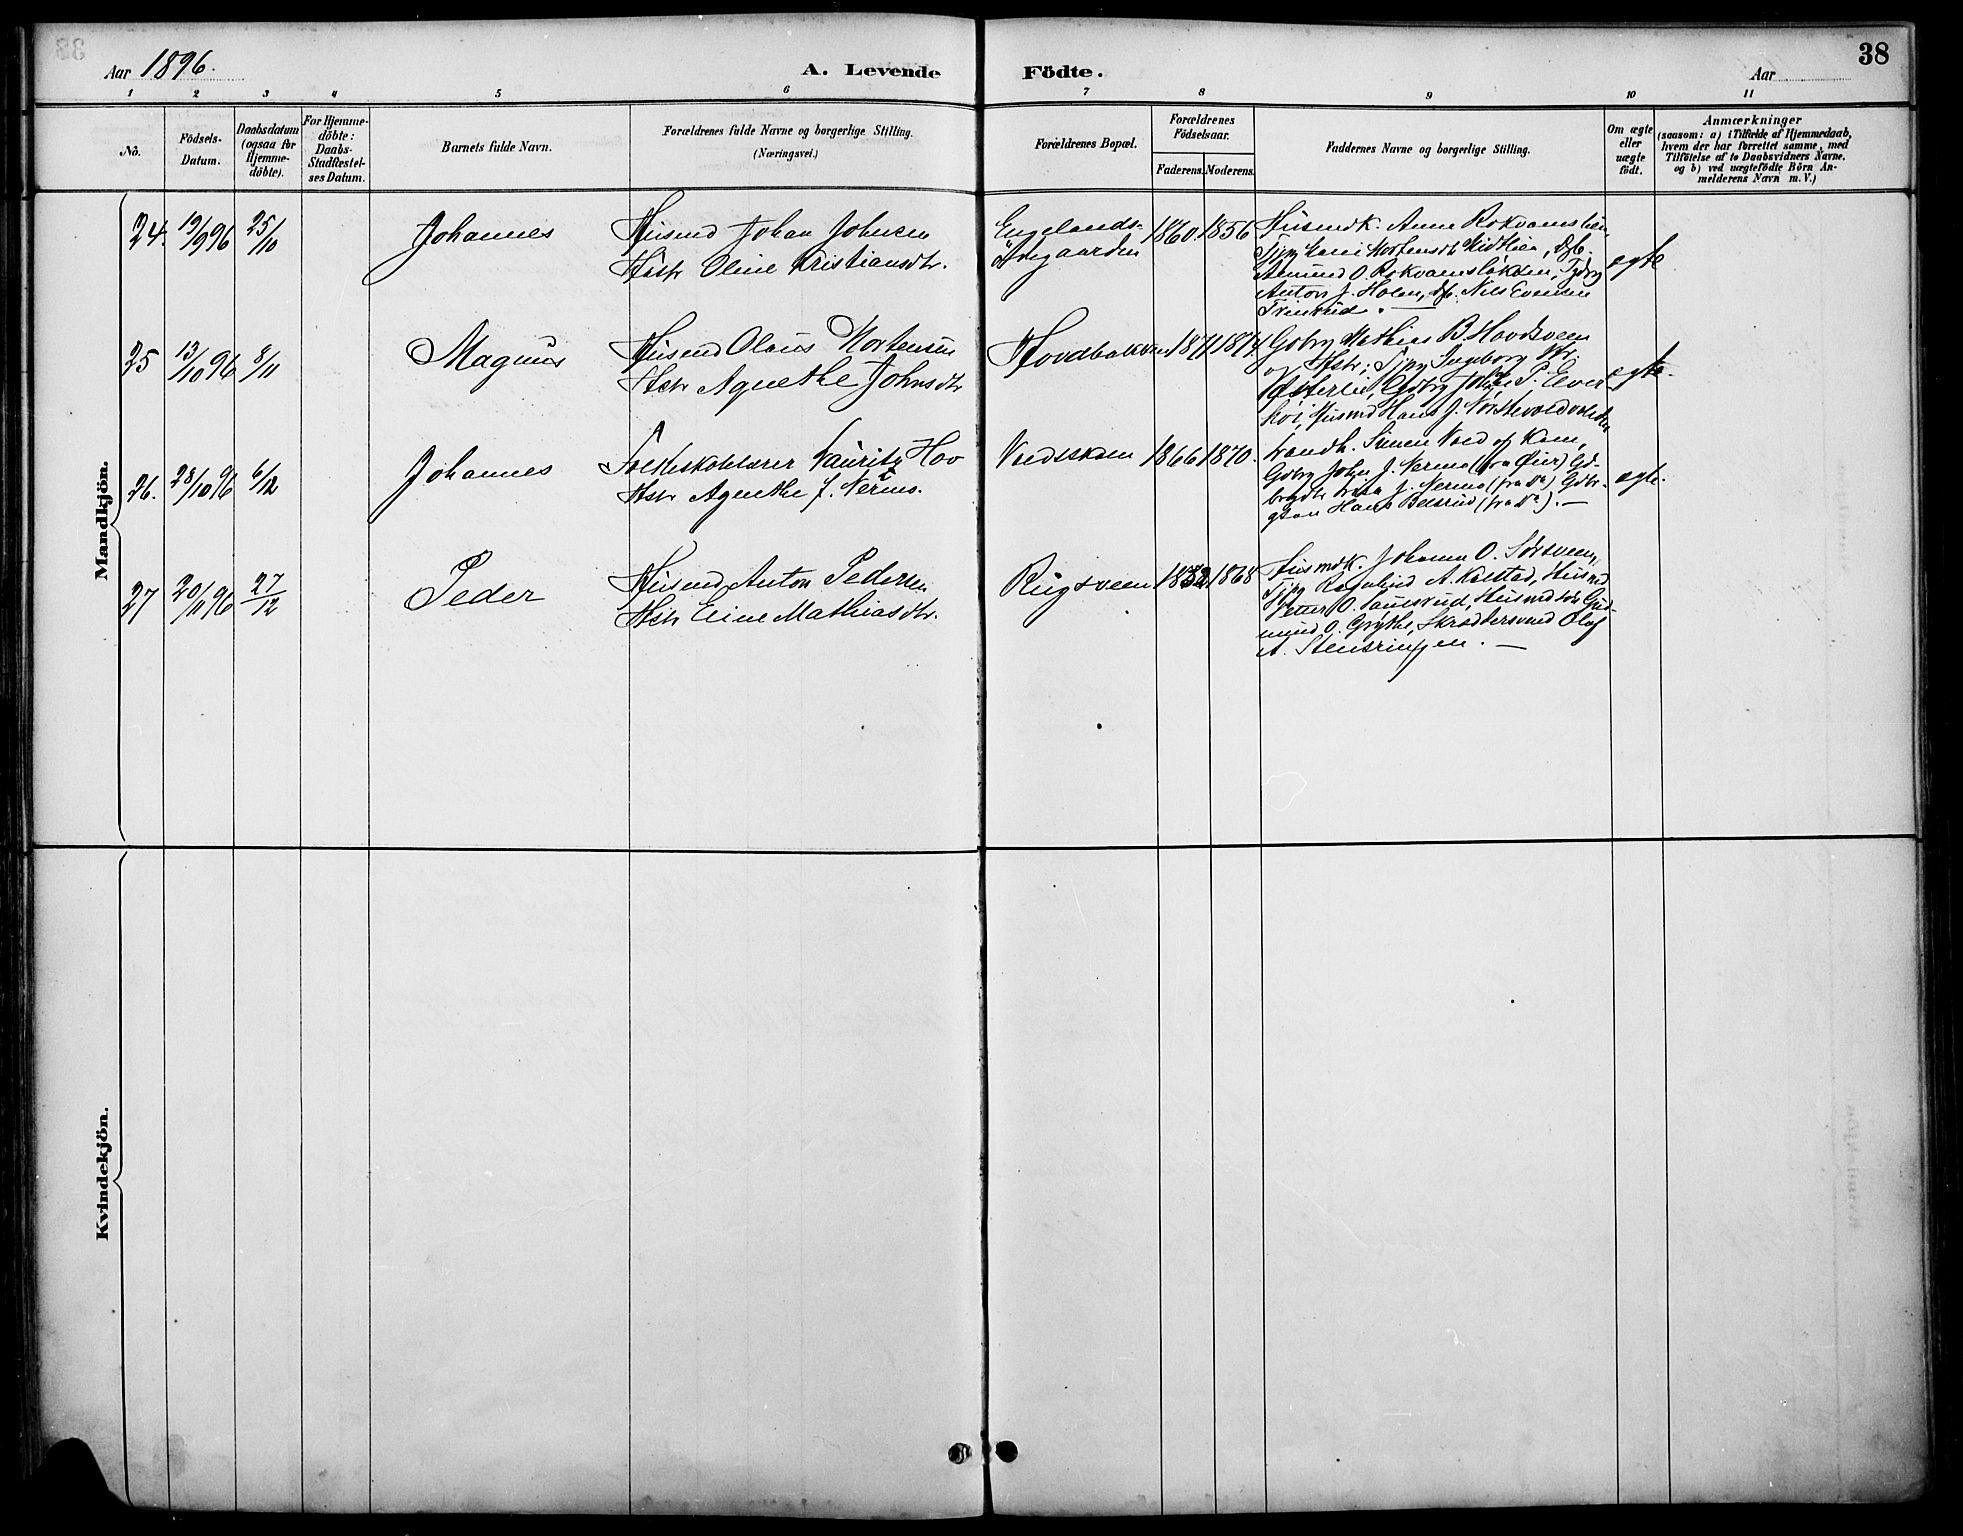 Aar 1896.
A. Levende Födte.
Aar
38
1 2 3 4 5 6 7 8 9 10 11
No.
Födsels-
Datum.
Daabsdatum
(ogsaa for
Hjemme-
döbte).
For Hjemme-
döbte:
Daabs-
Stadfæstel-
ses Datum.
Barnets fulde Navn.
Forældrenes fulde Navne og borgerlige Stilling.
(Næringsvei.)
Forældrenes Bopæl.
Forældrenes
Födselsaar.
Faderens. Moderens.
Faddernes Navne og borgerlige Stilling.
Om ægte
eller
uægte
födt.
Anmærkninger
(saasom: a) i Tilfælde af Hjemmedaab,
hvem der har forrettet samme, med
Tilföielse af to Daabsvidners Navne,
og b) ved uægtefödte Börn An-
melderens Navn m. V.)
Mandkjön.
24. 19/9 96 25/10 Johannes
Husmd Johan Johnsen
Hstr Oline Kristiansdtr.
Engelands-
ödegaarden
1860. 1856
Husmdk. Anne Rokvamslien
Mortensdtr Midtlien,
Amund O. Rokvamsløkken,
Anton J. Holen, Nils Evensen
ægte
25 13/10 96 8/11 Magnus
Husmd Olaus Mortensen
Hstr Agnethe Johnsdtr
Hovdbakken
1871 1874
Gbrg Mathias B. Hovdsveen
og Hstr; Tjpg Ingeborg
Østerlie, Gbrg Johan P.
Husmd Hans J.
ægte.
26. 28/10 96 6/12 Johannes
Folkeskolelærer Lauritz Hov
Hstr Agnethe J. Nermo.
1866 1870.
Landh. Simen Vold og Kone,
Gbrg John J. Nermo (fra Øier) Gd-
J. Nermo (fra Do) Gdbr-
Hans (fra Do). —
ægte.
27 20/11 96 27/12 Peder
Husmd Anton Pedersen
Hstr Eline Mathiasdtr.
Rugsveen
1868
Husmdk. Johanne O. Sørsveen,
Tjpg A. Kalstad, Husmd
Petter O. Paulsrud, Husmdsön Gud-
mund O. Grythe, Skræddersvend Olaf
A. Stensringen. —
Kvindekjön.